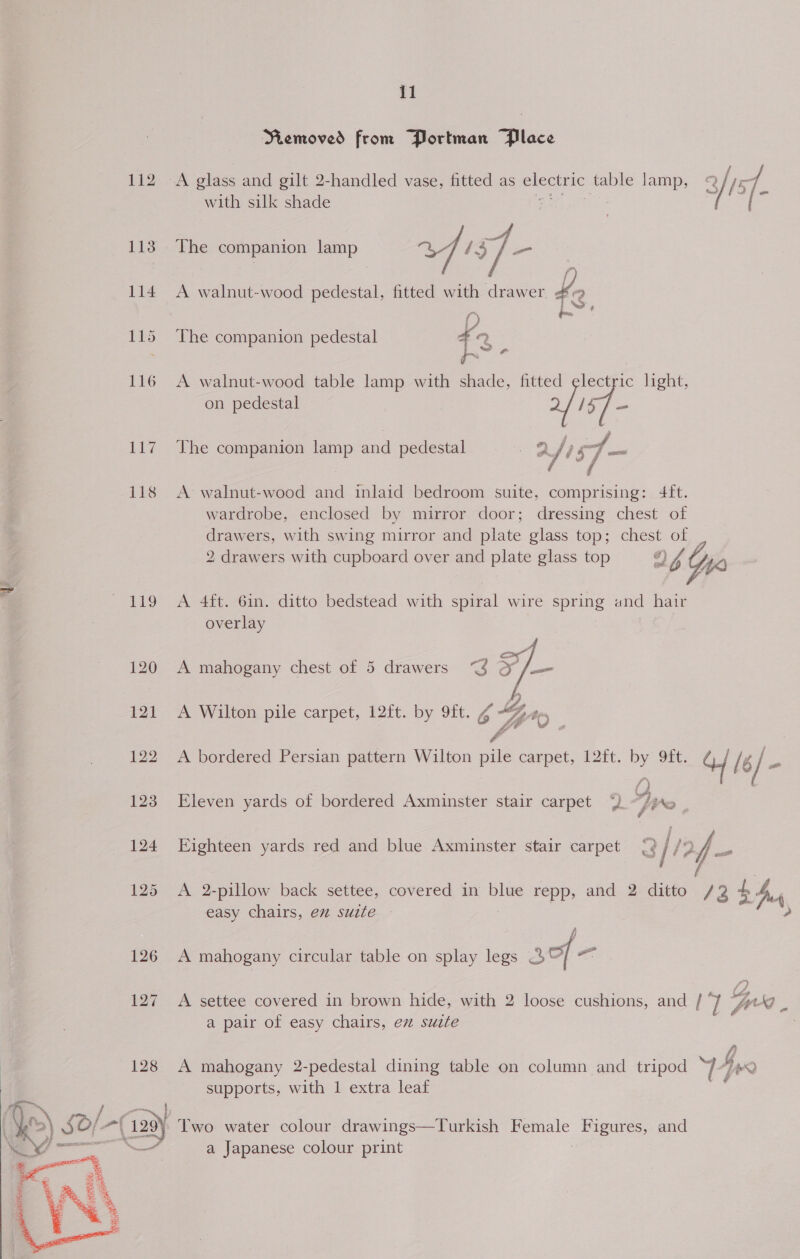 11
Removed from Portman Place
112 A glass and gilt 2-handled vase, fitted as electric table lamp, 2/15/-
with silk shade
113 The companion lamp 2/15/-
114 A walnut-wood pedestal, fitted with drawer £2
115 The companion pedestal £2
116 A walnut-wood table lamp with shade, fitted electric light,
on pedestal 2/15/-
117 The companion lamp and pedestal 2/15/-
118 A walnut-wood and inlaid bedroom suite, comprising: 4ft.
wardrobe, enclosed by mirror door; dressing chest of
drawers, with swing mirror and plate glass top; chest of
2 drawers with cupboard over and plate glass top 26 Gns
119 A 4ft. 6in. ditto bedstead with spiral wire spring and hair
overlay
120 A mahogany chest of 5 drawers 35/-
121 A Wilton pile carpet, 12ft. by 9ft. 6 Gns
122 A bordered Persian pattern Wilton pile carpet, 12ft. by 9ft. 4/16/-
123 Eleven yards of bordered Axminster stair carpet 2 Gns
124 Eighteen yards red and blue Axminster stair carpet 2/12/-
125 A 2-pillow back settee, covered in blue repp, and 2 ditto
easy chairs, en suite
126 A mahogany circular table on splay legs 30/-
127 A settee covered in brown hide, with 2 loose cushions, and 17 Gns
a pair of easy chairs, en suite
128 A mahogany 2-pedestal dining table on column and tripod 7 Gns
supports, with 1 extra leaf
50/- 129 Two water colour drawings—Turkish Female Figures, and
a Japanese colour print